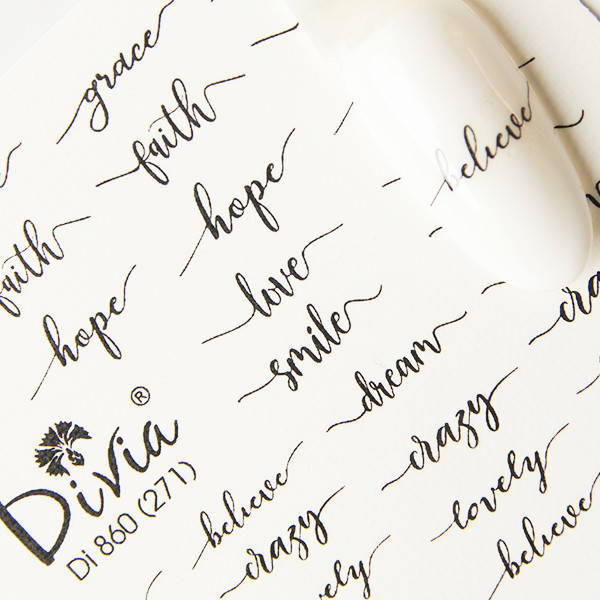 grace
faith
hope
believe
faith
love
hope
smile
dream
cra
crazy
Divia®
Di 860 (271)
believe
lovely
crazy
believe
ely